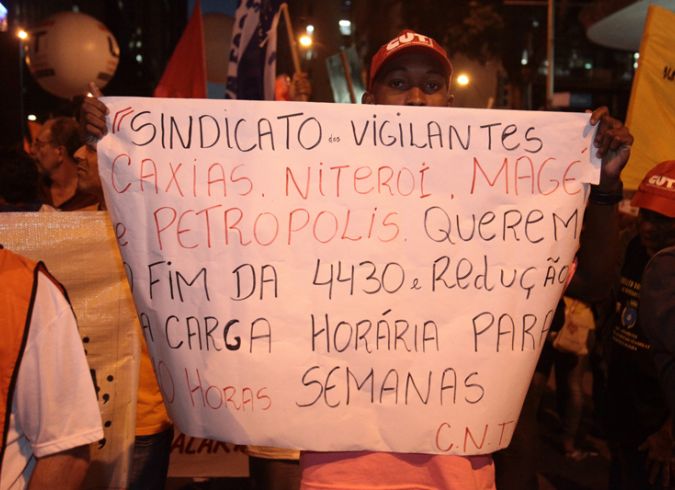 CUT
CUT
"SINDICATO dos VIGILANTES
CAXIAS. NITEROÍ. MAGÉ
e PETROPOLIS. QUEREM
O FIM DA 4430 e REDUÇÃO
A CARGA HORÁRIA PARA
40 HORAS SEMANAS
C.N.T
CUT